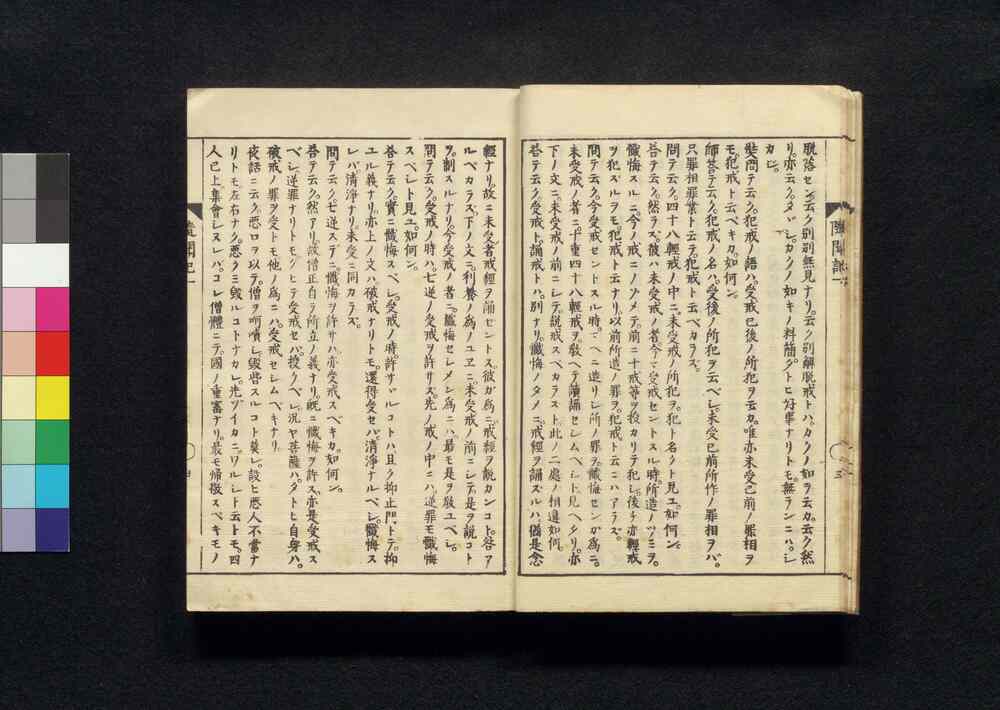 脱落セン云ク別別無見ナリ云ク別解脱戒トハカクノ如ヲ云カ云ク然
リ亦云クタヾシカクノ如キノ料簡タトヒ好事ナリトモ無ランニハシ
カジ
奘問テ云ク犯戒ノ語ハ受戒已後ノ所犯ヲ云カ唯亦未受已前ノ罪相ヲ
モ犯戒ト云ベキカ如何ン
師答テ云ク犯戒ノ名ハ受後ノ所犯ヲ云ベシ未受已前所作ノ罪相ヲハ
只罪相罪業ト云テ犯戒ト云ベカラズ
問テ云ク四十八輕戒ノ中ニ未受戒ノ所犯ヲ犯ト名クト見ユ如何ン
答テ云ク然ラズ彼ハ未受戒ノ者今マ受戒セントスル時所造ノツミヲ
懺悔スルニ今ノ戒ニノゾメテ前ニ十戒等ヲ授カリテ犯シ後チ亦輕戒
ヲ犯スルヲモ犯戒ト云ナリ以前所造ノ罪ヲ犯戒ト云ニハアラズ
問テ云ク今受戒セントスル時マヘニ造リシ所ノ罪ヲ懺悔センガ為ニ
未受戒ノ者ニ十重四十八輕戒ヲ教ヘテ讀誦セシムベシト見ヘタリ亦
下ノ文ニ未受戒ノ前ニシテ説戒スベカラズト此ノ二處ノ相違如何
答テ云ク受戒ト誦戒トハ別ナリ懺悔ノタメニ戒經ヲ誦スルハ猶是念
經ナリ故ニ未受者戒經ヲ誦セントス彼カ為ニ戒經ヲ説カンコト咎ア
ルベカラズ下ノ文ニ利養ノ為ノユヱニ未受戒ノ前ニシテ是ヲ説コト
ヲ制スルナリ今受戒ノ者ニ懺悔セシメン為ニハ最モ是ヲ教ユベシ
問テ云ク受戒ノ時ハ七逆ノ受戒ヲ許サズ先ノ戒ノ中ニハ逆罪モ懺悔
スベシト見ユ如何ン
答テ云ク實ニ懺悔スベシ受戒ノ時許サヾルコトハ且ク抑止門トテ抑
ユル義ナリ亦上ノ文ハ破戒ナリトモ還得受セバ清淨ナルベシ懺悔ス
レバ清淨ナリ未受ニ同カラズ
問テ云ク七逆ステニ懺悔ヲ許サハ亦受戒スベキカ如何ン
答テ云ク然アリ故僧正自ラ所立ノ義ナリ既ニ懺悔ヲ許ス亦是受戒ス
ベシ逆罪ナリトモクヒテ受戒セバ授クベシ況ヤ菩薩ハタトヒ自身ハ
破戒ノ罪ヲ受トモ他ノ為ニハ受戒セシムベキナリ
夜話ニ云ク悪口ヲ以テ僧ヲ呵嘖シ毀呰スルコト莫レ設ヒ悪人不當ナ
リトモ左右ナク悪クミ毀ルコトナカレ先ヅイカニワルシト云トモ四
人已上集會シヌレバコレ僧體ニテ國ノ重寳ナリ最モ帰敬スベキモノ